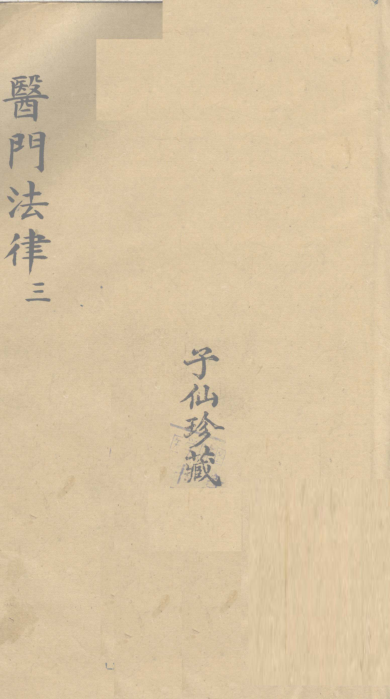 醫門法律 三
子仙珍藏